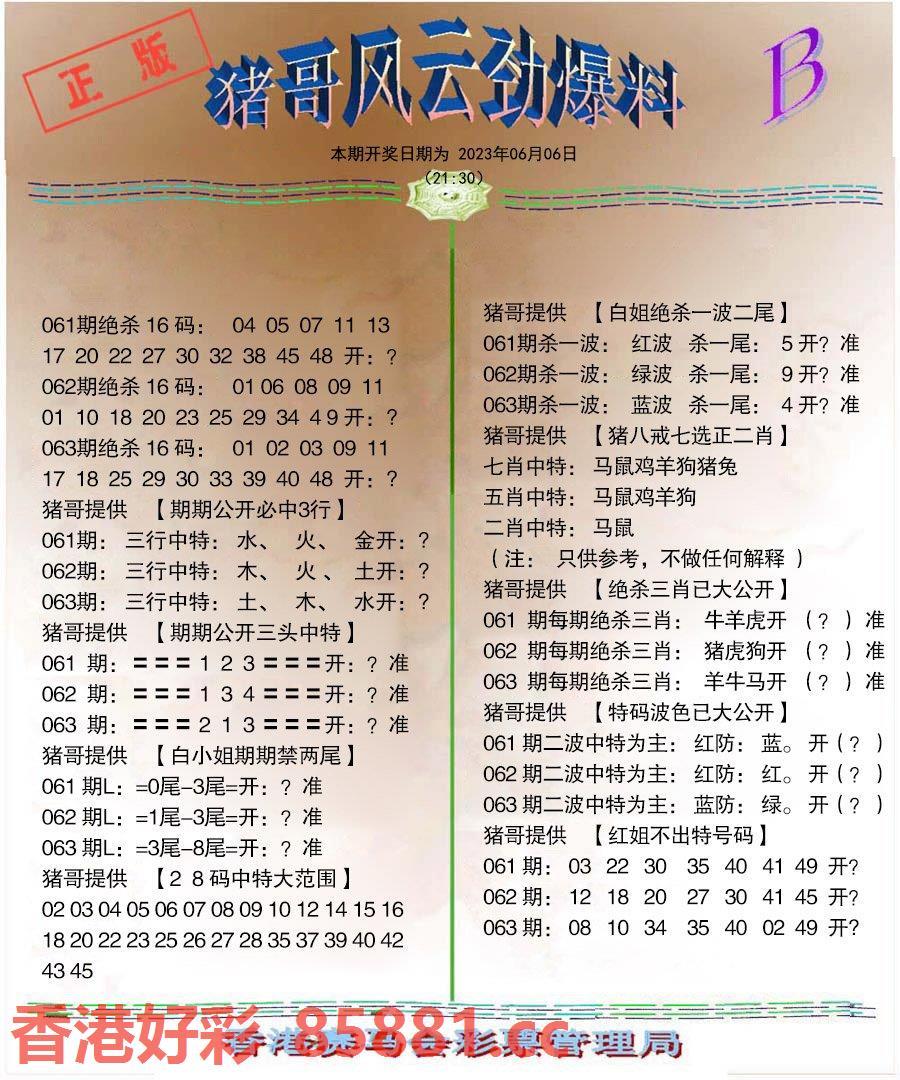 正版
猪哥风云劲爆料
B
本期开奖日期为 2023年06月06日
(21:30)
061期绝杀16码: 04 05 07 11 13
17 20 22 27 30 32 38 45 48 开:?
062期绝杀16码: 01 06 08 09 11
01 10 18 20 23 25 29 34 4 9 开:?
063期绝杀16码: 01 02 03 09 11
17 18 25 29 30 33 39 40 48 开:?
猪哥提供 【期期公开必中3行】
061期: 三行中特: 水、 火、 金开:?
062期: 三行中特: 木、 火、 土开:?
063期: 三行中特: 土、 木、 水开:?
猪哥提供 【期期公开三头中特】
061 期: === 1 2 3 ===开:? 准
062 期: === 1 3 4 ===开:? 准
063 期: === 2 1 3 ===开:? 准
猪哥提供 【白小姐期期禁两尾】
061 期L: =0尾-3尾=开:? 准
062 期L: =1尾-3尾=开:? 准
063 期L: =3尾-8尾=开:? 准
猪哥提供 【2 8码中特大范围】
02 03 04 05 06 07 08 09 10 12 14 15 16
18 20 22 23 25 26 27 28 35 37 39 40 42
43 45
猪哥提供 【白姐绝杀一波二尾】
061期杀一波: 红波 杀一尾: 5 开? 准
062期杀一波: 绿波 杀一尾: 9 开? 准
063期杀一波: 蓝波 杀一尾: 4 开? 准
猪哥提供 【猪八戒七选正二肖】
七肖中特: 马鼠鸡羊狗猪兔
五肖中特: 马鼠鸡羊狗
二肖中特: 马鼠
(注: 只供参考,不做任何解释 )
猪哥提供 【绝杀三肖已大公开】
061 期每期绝杀三肖: 牛羊虎开 (? ) 准
062 期每期绝杀三肖: 猪虎狗开 (? ) 准
063 期每期绝杀三肖: 羊牛马开 (? ) 准
猪哥提供 【特码波色已大公开】
061 期二波中特为主: 红防: 蓝。 开 (? )
062 期二波中特为主: 红防: 红。 开 (? )
063 期二波中特为主: 蓝防: 绿。 开 (? )
猪哥提供 【红姐不出特号码】
061 期: 03 22 30 35 40 41 49 开?
062 期: 12 18 20 27 30 41 45 开?
063 期: 08 10 34 35 40 02 49 开?
香港好彩 85881.cc
香港赛马会彩票管理局